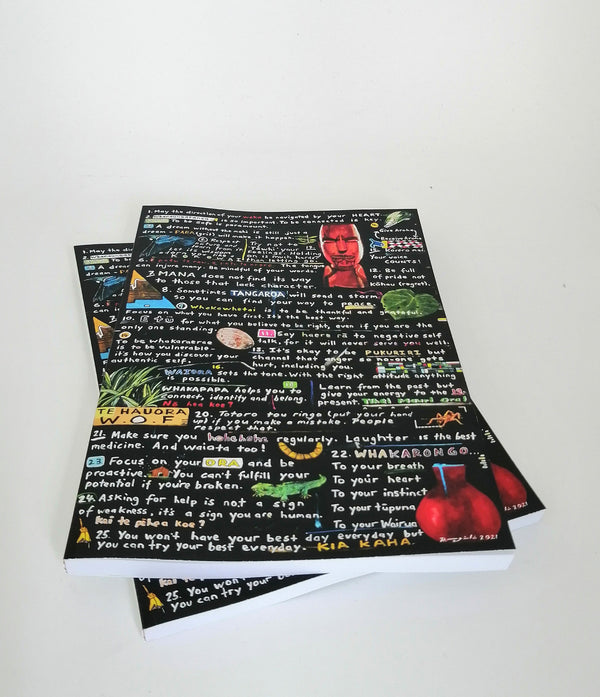 1. May the direction of your waka be navigated by your HEART
To be safe is so important. To be connected is key
is paramount.
A dream without the mahi is still just a
dream - will make it happen.
Give Aroha,
Try not to
holding
on to much hate
Your voice
COUNTS!
can injure many. Be mindful of your words
7. MANA does not find its way
to those that lack character.
12. Be full
of pride not
Kōhau (regret).
8. Sometimes TANGAROA will send a storm
so you can find your way to peace.
9. Whakawhetai is to be thankful and grateful.
Focus on what you have first. It's the best way.
10. E tū for what you believe to be right, even if you are the
only one standing
11. Say haere rā to negative self
talk, for it will never serve you well.
To be whakamaroe
is to be vulnerable
it's how you discover your
authentic self.
13. It's okay to be PUKURIRI but
channel that anger so no-one gets
hurt, including you.
16. WAIORA sets the tone. With the right attitude anything
is possible.
WHAKAPAPA helps you to
connect, identify and belong.
Nō hea koe?
Learn from the past but
give your energy to the
present.
TE HAUORA
W.O.F
20. Totoro tou ringa (put your hand
up) if you make a mistake. People
respect that.
21. Make sure you katakata regularly. Laughter is the best
medicine. And waiata too!
22. WHAKARONGO.
To your breath
To your heart
To your instinct
To your tūpuna
To your Wairua
23 Focus on your ORA and be
proactive. You can't fulfill your
potential if you're broken.
24. Asking for help is not a sign
of weakness, it's a sign you are human.
Kei te pēhea koe?
25. You won't have your best day everyday but
you can try your best everyday. KIA KAHA.
2021
1. May the
dream
can injure
25. You won't
you can try your
2021